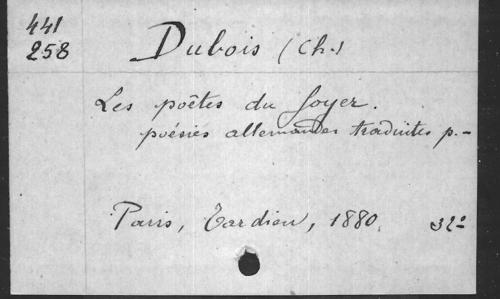 441
258
Dubois (Ch.)
Les poëtes du foyer.
poésies allemandes traduites p.-
Paris, Tardieu, 1880. 32º